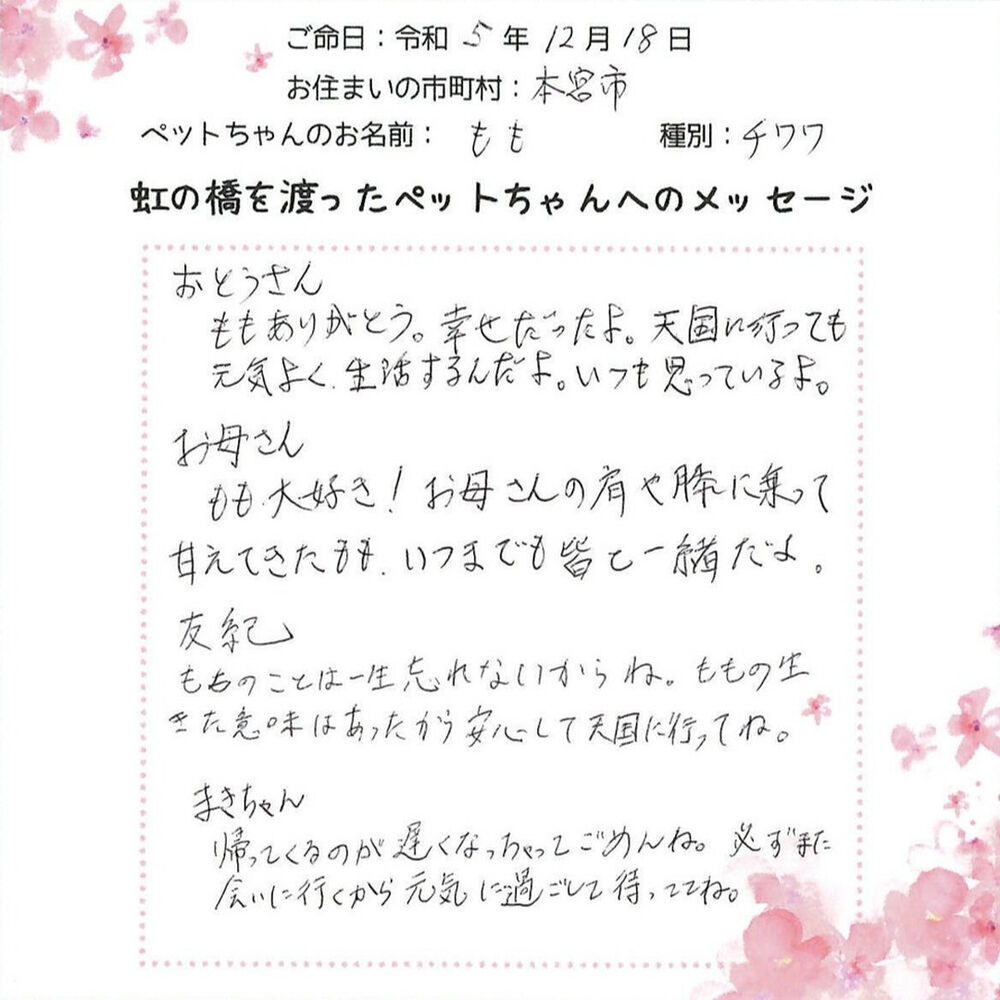 ご命日：令和 5 年 12 月 18 日
お住まいの市町村：本宮市
ペットちゃんのお名前： もも 種別：チワワ
虹の橋を渡ったペットちゃんへのメッセージ
おとうさん
ももありがとう。幸せだったよ。天国に行っても
元気よく、生活するんだよ。いつも思っているよ。
お母さん
もも、大好き！お母さんの肩や膝に乗って
甘えてきたもも、いつまでも皆と一緒だよ。
友紀
ももことは一生忘れないからね。ももの生
きた意味はあったから安心して天国に行ってね。
まきちゃん
帰ってくるのが遅くなっちゃってごめんね。必ずまた
会いに行くから元気に過ごして待っててね。